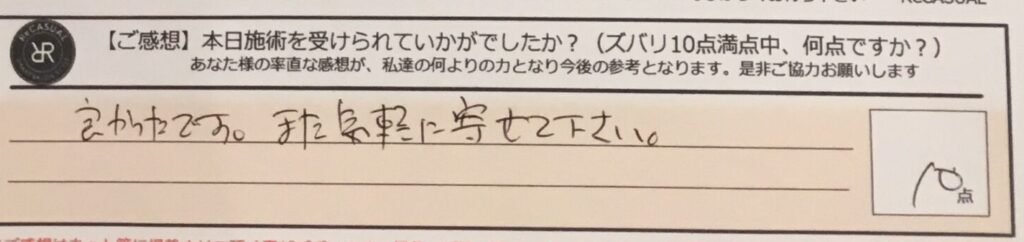 ReCASUAL
RR
【ご感想】本日施術を受けられていかがでしたか？（ズバリ10点満点中、何点ですか？）
あなた様の率直な感想が、私達の何よりの力となり今後の参考となります。是非ご協力お願いします
良かったです。また気軽に寄せて下さい。
10点